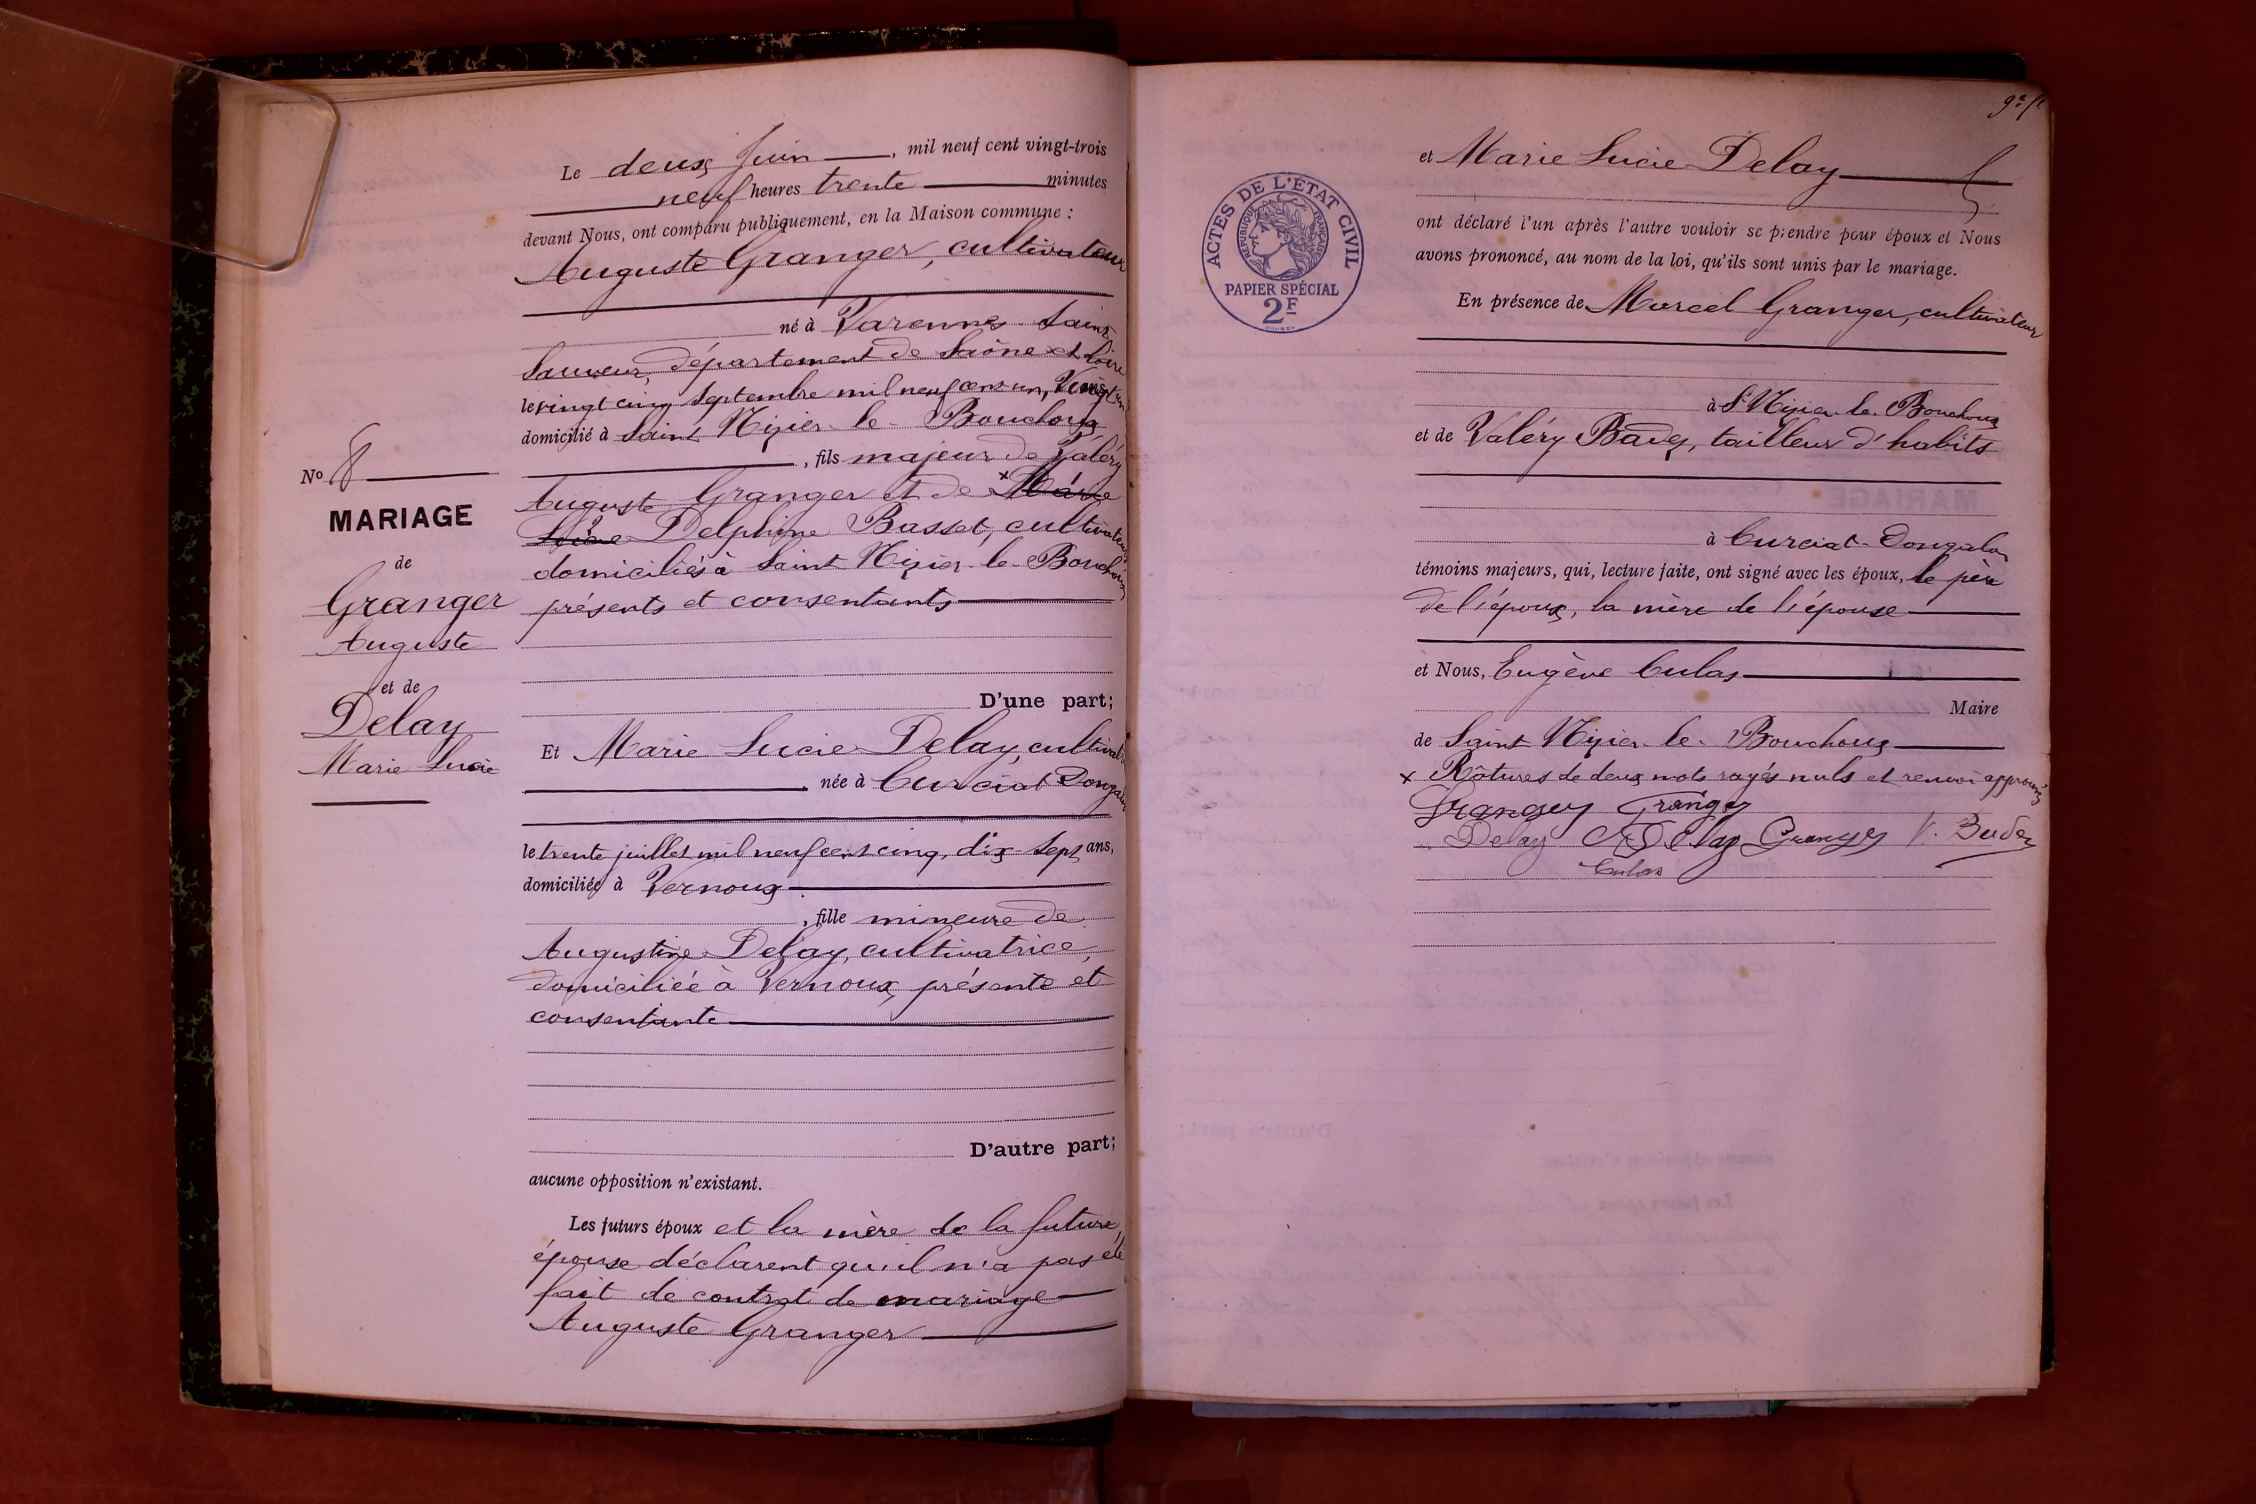 Le deux Juin, mil neuf cent vingt-trois
neuf heures trente minutes
devant Nous, ont comparu publiquement, en la Maison commune :
Auguste Granger, cultivateur
né à Varennes-Saint-
Sauveur, département de Saône et Loire
le vingt cinq septembre mil neuf cent un,
domicilié à Saint Nizier-le-Bouchoux
, fils majeur de Valéry
Auguste Granger et de x Marie
Delphine Basset, cultivateurs
domiciliés à Saint Nizier-le-Bouchoux
présents et consentants
No 8
MARIAGE
de
Granger
Auguste
et de
Delay
Marie Lucie
D'une part;
Et Marie Lucie Delay, cultivat
née à Curciat Dongalon
le trente juillet mil neuf cent cinq, dix sept ans,
domiciliée à Vernoux
, fille mineure de
Augustine Delay, cultivatrice,
domiciliée à Vernoux, présente et
consentante
D'autre part;
aucune opposition n'existant.
Les futurs époux et la mère de la future
épouse déclarent qu'il n'a pas été
fait de contrat de mariage
Auguste Granger
et Marie Lucie Delay
ACTES DE L'ETAT CIVIL
REPUBLIQUE FRANÇAISE
PAPIER SPÉCIAL
2F
ont déclaré l'un après l'autre vouloir se prendre pour époux et Nous
avons prononcé, au nom de la loi, qu'ils sont unis par le mariage.
En présence de Marcel Granger, cultivateur
à St Nizier-le-Bouchoux
et de Valéry, tailleur d'habits
à Curciat-Dongalon
témoins majeurs, qui, lecture faite, ont signé avec les époux, le père
de l'époux, la mère de l'épouse
et Nous, Eugène Culas
Maire
de Saint Nizier-le-Bouchoux
x Rôtures de deux mots rayés nuls et renvoi approuvés
Granger Granger
Delay Delay Granger V.
Culas